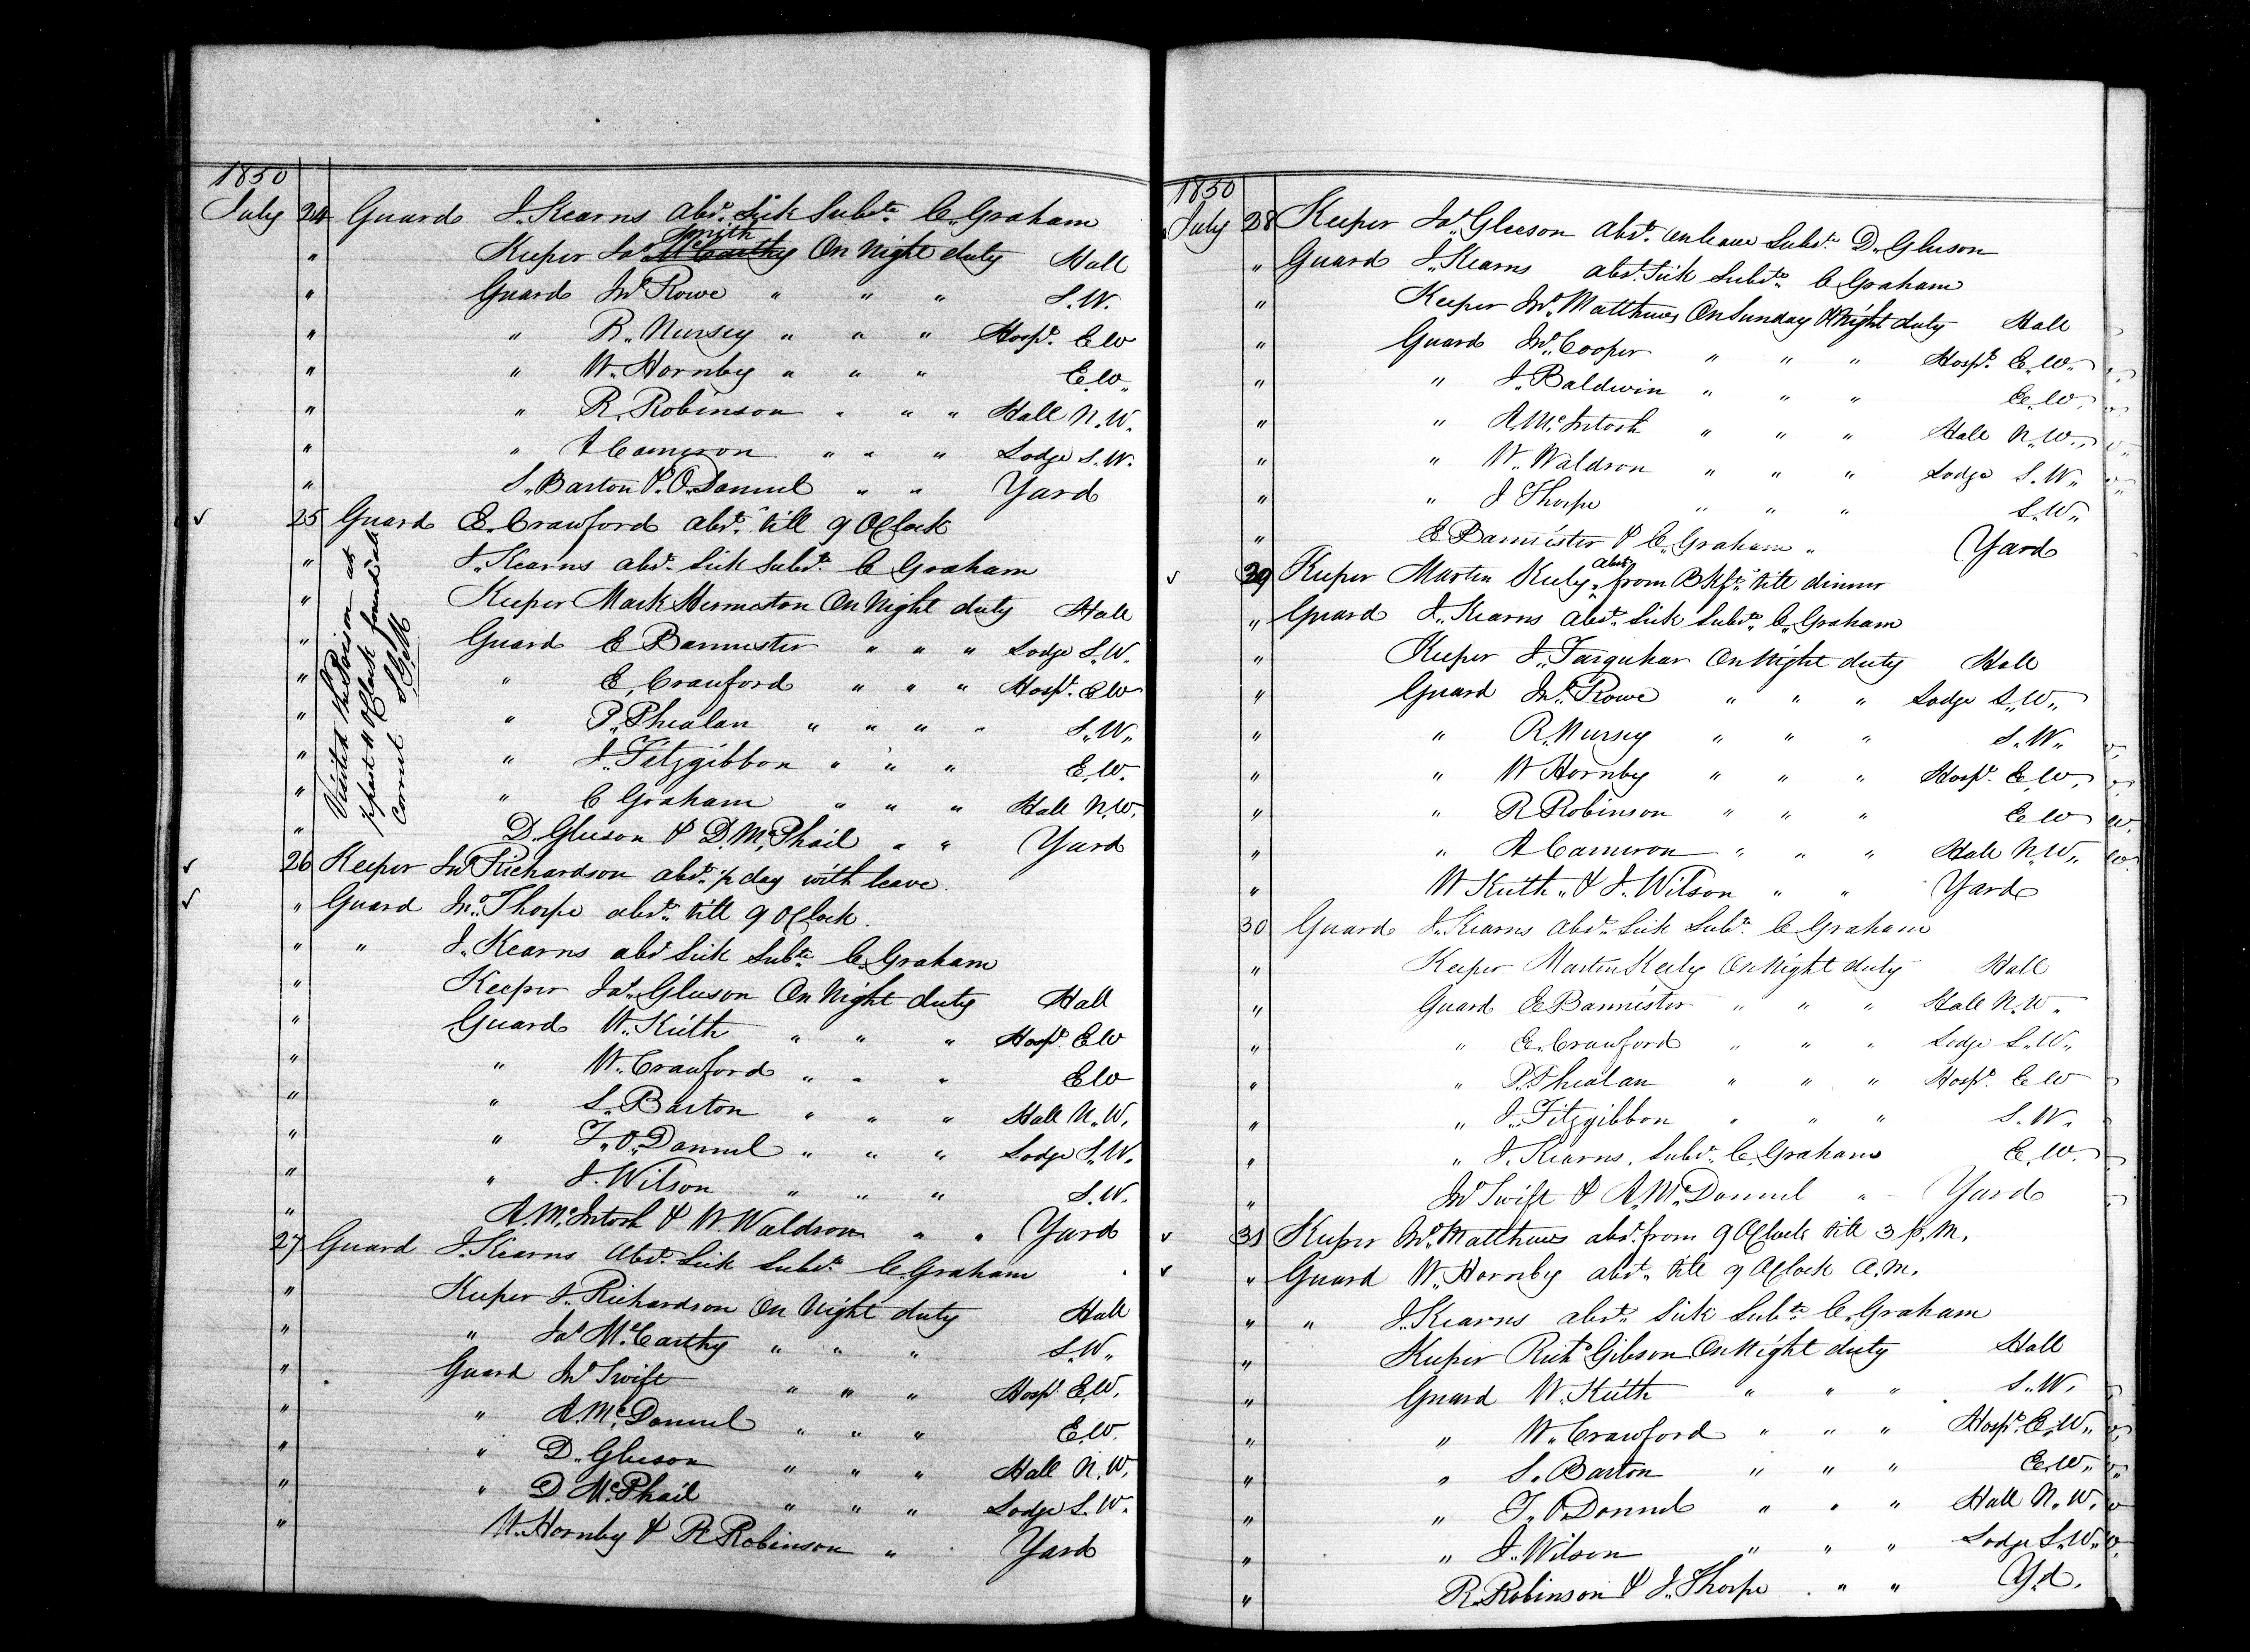 1850
July 24 Guard J. Kearns abst. Sick Subste. C. Graham
" Keeper Jas. Smith McCarthy On Night duty Hall
" Guard Jno. Rowe " " " S.W.
" " R. Nursey " " " Hospl. E.W
" " W. Hornby " " " E.W.
" " R. Robinson " " " Hall N.W.
" " A Cameron " " " Lodge S.W.
" S. Barton & O. Donnel " " Yard
✓ 25 Guard E. Crawford abst. till 9 OClock
" J. Kearns abst. Sick Subste. C Graham
" Keeper Mark Hermeston On Night duty Hall
" Guard E Bannister " " " Lodge S.W.
" " E. Crawford " " " Hospl. E.W
" " P. Phealan " " " " S.W.
" " J. Fitzgibbon " " " E.W.
" " C Graham " " " Hall N.W.
" D. Gleeson & D. McPhail " " Yard
Visited the Prison at
past 11 OClock found all
correct
✓ 26 Keeper Jno. Richardson abst. ½ day with leave.
✓ " Guard Jno. Thorpe abst. till 9 OClock.
" " J. Kearns abst Sick Subste. C. Graham
" Keeper Jas. Gleeson On Night duty Hall
" Guard W. Keith " " " Hospl. E.W
" " W. Crawford " " " E.W
" " S. Barton " " " Hall N.W.
" " T. O. Donnel " " " Lodge S.W.
" " J. Wilson " " " S.W.
" A. McIntosh & W. Waldron " " Yard
27 Guard J. Kearns abst. Sick Subste. C. Graham
" Keeper J. Richardson On Night duty Hall
" " Jas. McCarthy " " " S.W.
" Guard Jno. Swift " " " Hospl. E.W.
" " A. McDonnel " " " E.W.
" " D. Gleeson " " " Hall N.W.
" " D McPhail " " " Lodge S.W.
" W. Hornby & R Robinson " Yard
1850
July 28 Keeper Jas. Gleeson abst. on leave Subste. D. Gleeson
" Guard J. Kearns abst. Sick Subste. C Graham
" Keeper Jno. Matthews On Sunday & Night duty Hall
" Guard Jno. Cooper " " " Hospl. E.W.
" " J. Baldwin " " " E.W.
" " A. McIntosh " " " Hall N.W.
" " W. Waldron " " " Lodge S.W.
" " J Thorpe " " " S.W.
" E Bannister & C. Graham " Yard
✓ 29 Keeper Martin Keely abst. from Bkft. till dinner
" Guard J. Kearns abst. Sick Subste. C. Graham
" Keeper J. Farquhar On Night duty Hall
" Guard Jno. Rowe " " " Lodge S.W.
" " R. Nursey " " " S.W.
" " W Hornby " " " Hospl. E.W.
" " R Robinson " " " E.W
" " A Cameron " " " Hall N.W.
" W Keith & J. Wilson " " Yard
30 Guard J. Kearns abst. Sick Subst. C Graham
" Keeper Martin Keely On Night duty Hall
" Guard E Bannister " " " Hall N.W.
" " E. Crawford " " " Lodge S.W.
" " P. Phealan " " " Hospl. E.W
" " J. Fitzgibbon " " " S.W.
" " J. Kearns. Subst. C. Graham E.W.
" Jno. Swift & A. McDonnel " Yard
✓ 31 Keeper Jno. Matthews abst. from 9 OClock till 3 p.m.
✓ " Guard W. Hornby abst. till 9 OClock A.M.
" " J. Kearns abst. Sick Subste. C. Graham
" Keeper Richd. Gibson On Night duty Hall
" Guard W. Keith " " " S.W.
" " W. Crawford " " " Hospl. E.W.
" " S. Barton " " " E.W.
" " T. O Donnel " " " Hall N.W.
" " J. Wilson " " " Lodge S.W.
" R. Robinson & J. Thorpe " " Yd.